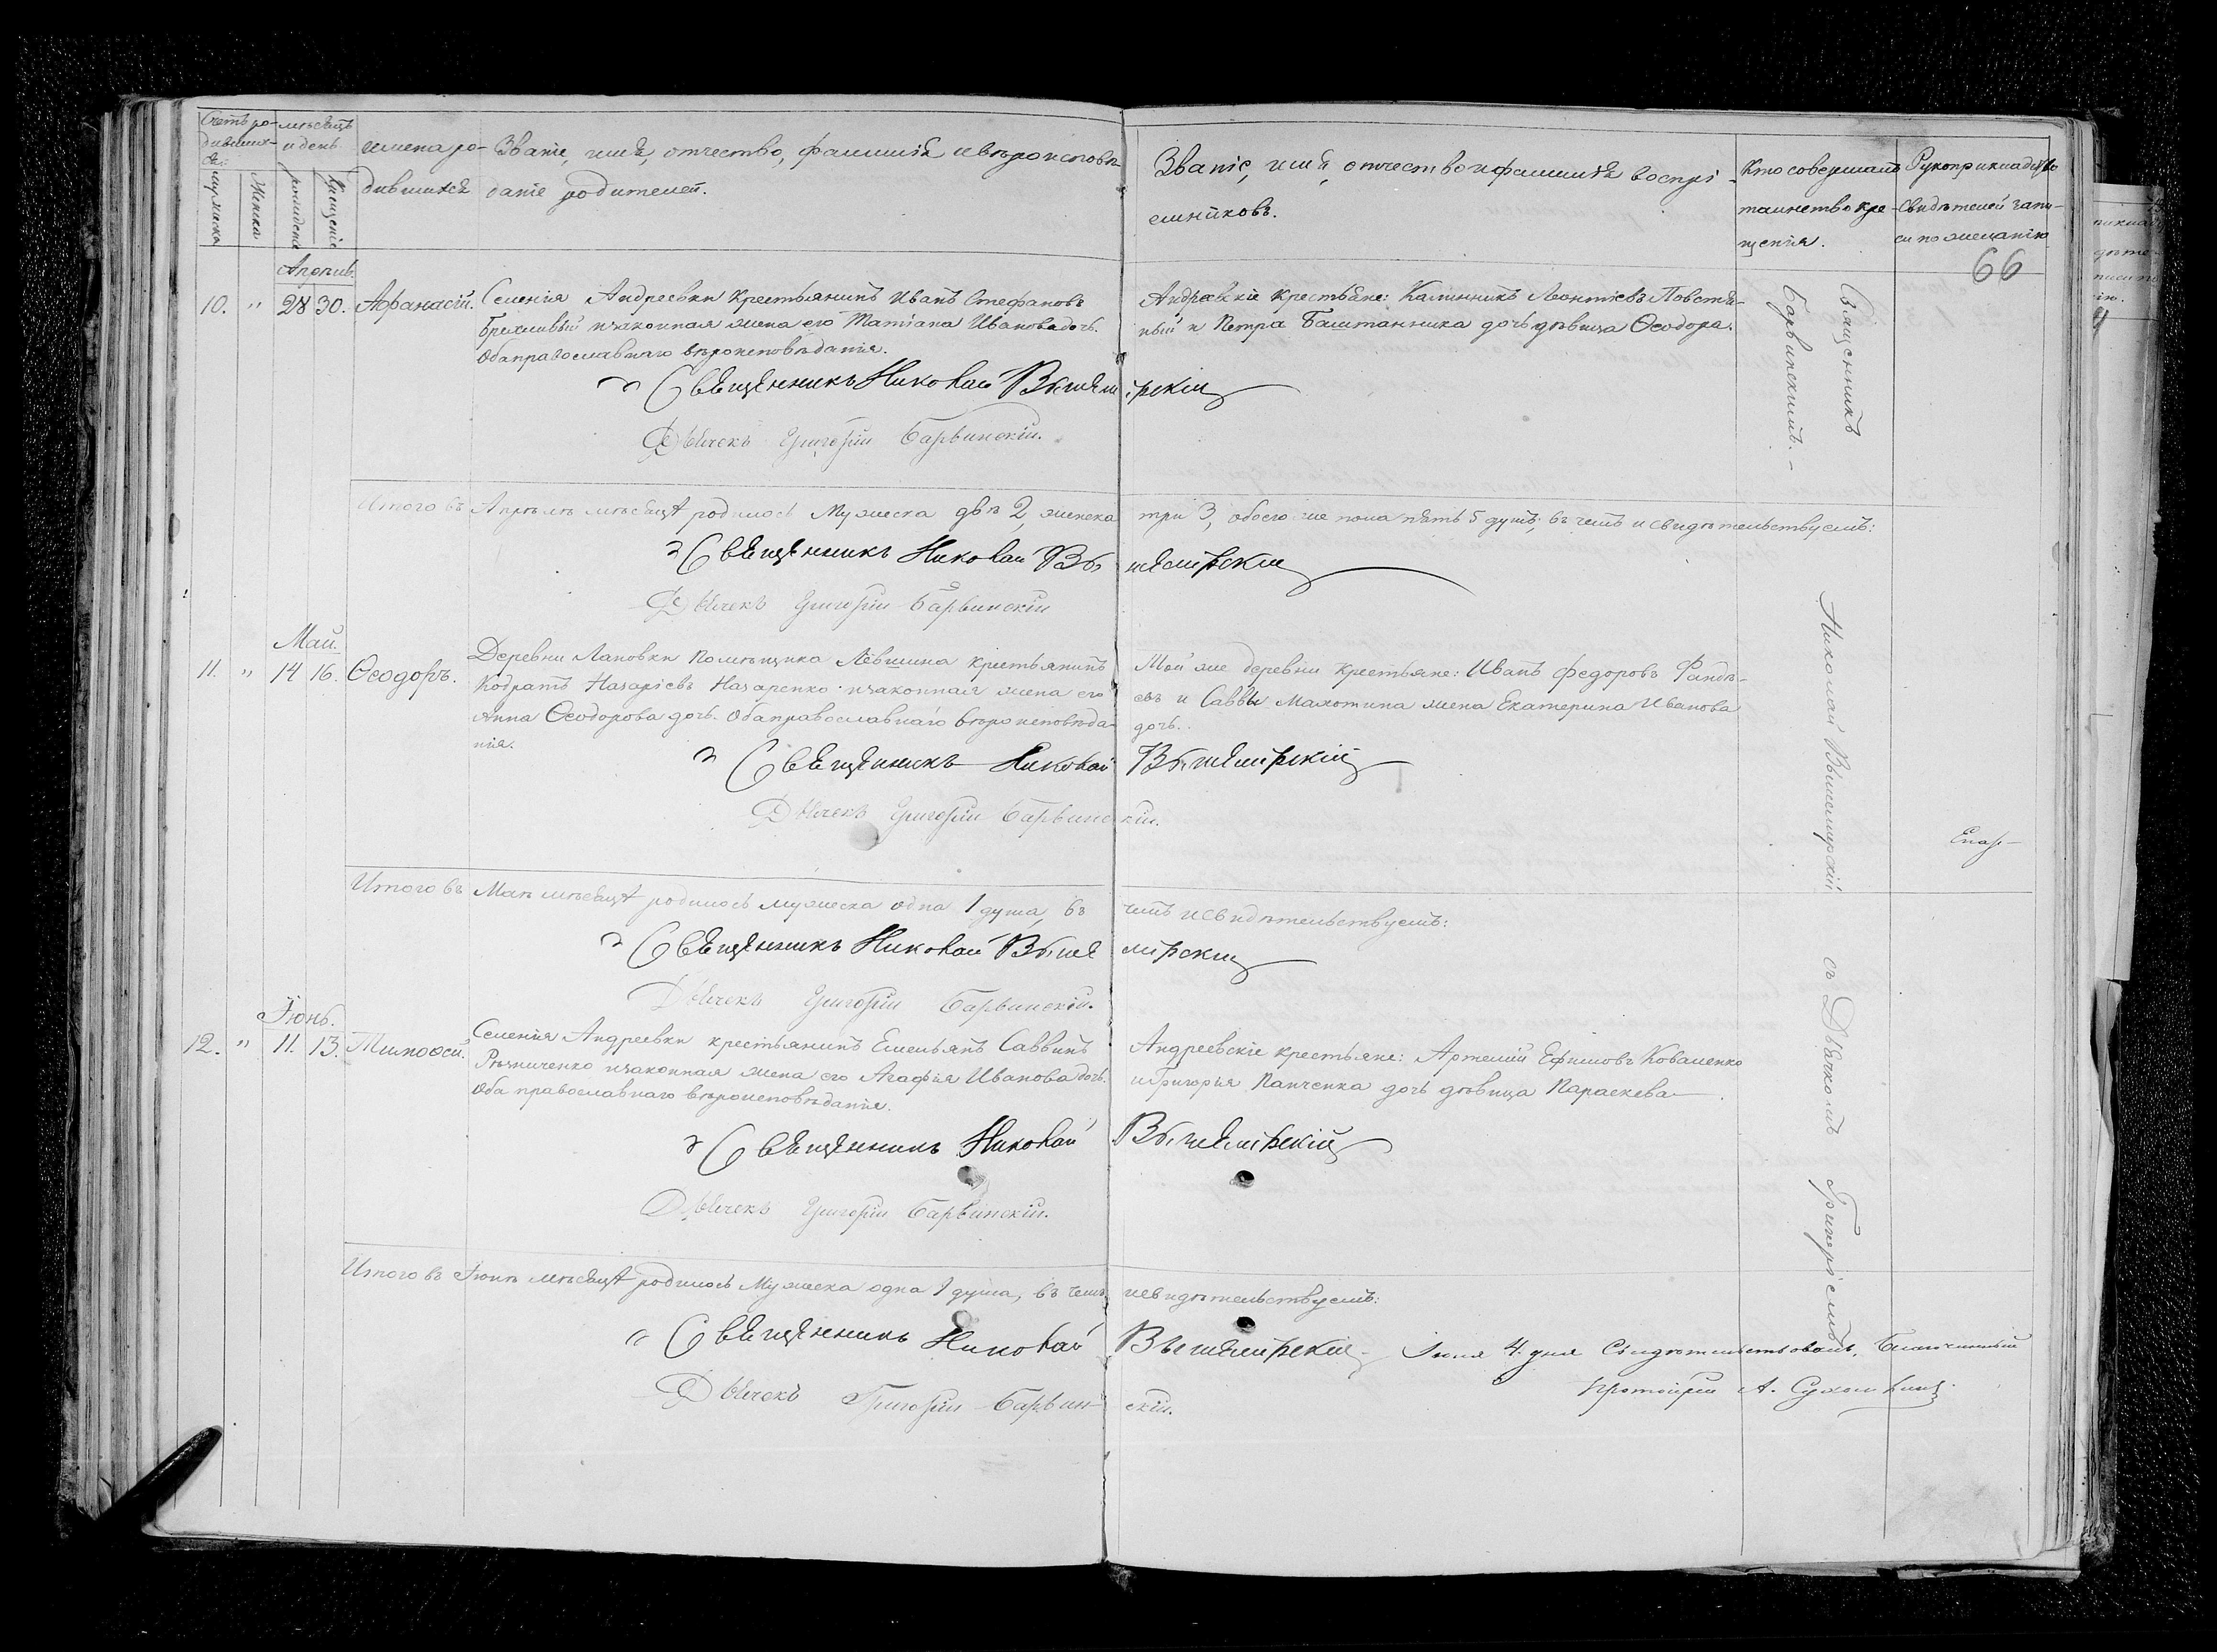 Счетъ ро-
дивших-
ся:
мѣсяцъ
и день
имена ро-
дившихся
Званіе, имя, отчество, фамилія и вѣроисповѣ
даніе родителей.
Званіе, имя, отчество и фамилія воспрі-
емниковъ.
Кто совершалъ
таинство кре-
щенія.
Рукоприкладство
свидѣтелей запи-
си по желанію
66
мужеска
Женска
рожденіе
Крещеніе
Апрѣль.
10. " 28 30. Афанасій.
Селенія Андреевки крестьянинъ Иванъ Стефановъ
Брехливый и законная жена его Татіана Иванова дочь.
Оба православнаго вѣроисповѣданія.
Андреевскіе крестьяне: Калинникъ Леонтіевъ Повстя-
ный и Петра Баштанника дочь дѣвица Ѳеодора.
Священникъ Николай Вышемірскій
Дьячекъ Григорій Барвинскій.
Итого въ Апрѣлѣ мѣсяцѣ родилось Мужеска двѣ 2, женска три 3, обоего же пола пять 5 душъ; въ чемъ и свидѣтельствуемъ:
Священникъ Николай Вышемірскій
Дьячекъ Григорій Барвинскій
Май.
11. " 14 16. Ѳеодоръ.
Деревни Лановки помѣщика Лёвшина крестьянинъ
Кодратъ Назаріевъ Назаренко и законная жена его
Анна Ѳеодорова дочь. Оба православнаго вѣроисповѣда-
нія.
Той же деревни крестьяне: Иванъ Федоровъ Фандѣ-
евъ и Саввы Махотина жена Екатерина Иванова
дочь.
Священникъ Николай Вышемірскій
Дьячекъ Григорій Барвинскій.
Итого въ Маѣ мѣсяцѣ родилось мужеска одна 1 душа, въ чемъ и свидѣтельствуемъ:
Священникъ Николай Вышемірскій
Дьячекъ Григорій Барвинскій.
Іюнь.
12. " 11. 13. Тимоѳей.
Селенія Андреевки крестьянинъ Емельянъ Саввинъ
Рѣзниченко и законная жена его Агафія Иванова дочь.
Оба православнаго вѣроисповѣданія.
Андреевскіе крестьяне: Артемій Ефимовъ Коваленко
и Григорія Панченка дочь дѣвица Параскева.
Священникъ Николай Вышемірскій
Дьячекъ Григорій Барвинскій.
Итого въ Іюнѣ мѣсяцѣ родилось Мужеска одна 1 душа, въ чемъ и свидѣтельствуемъ:
Священникъ Николай Вышемірскій
Дьячекъ Григорій Барвинскій.
Іюля 4. дня Свидѣтельствовалъ, Благочинный
протоіерей А.
Священникъ Николай Вышемирскій съ Дьячкомъ Григоріемъ
Барвинскимъ.
Епар-